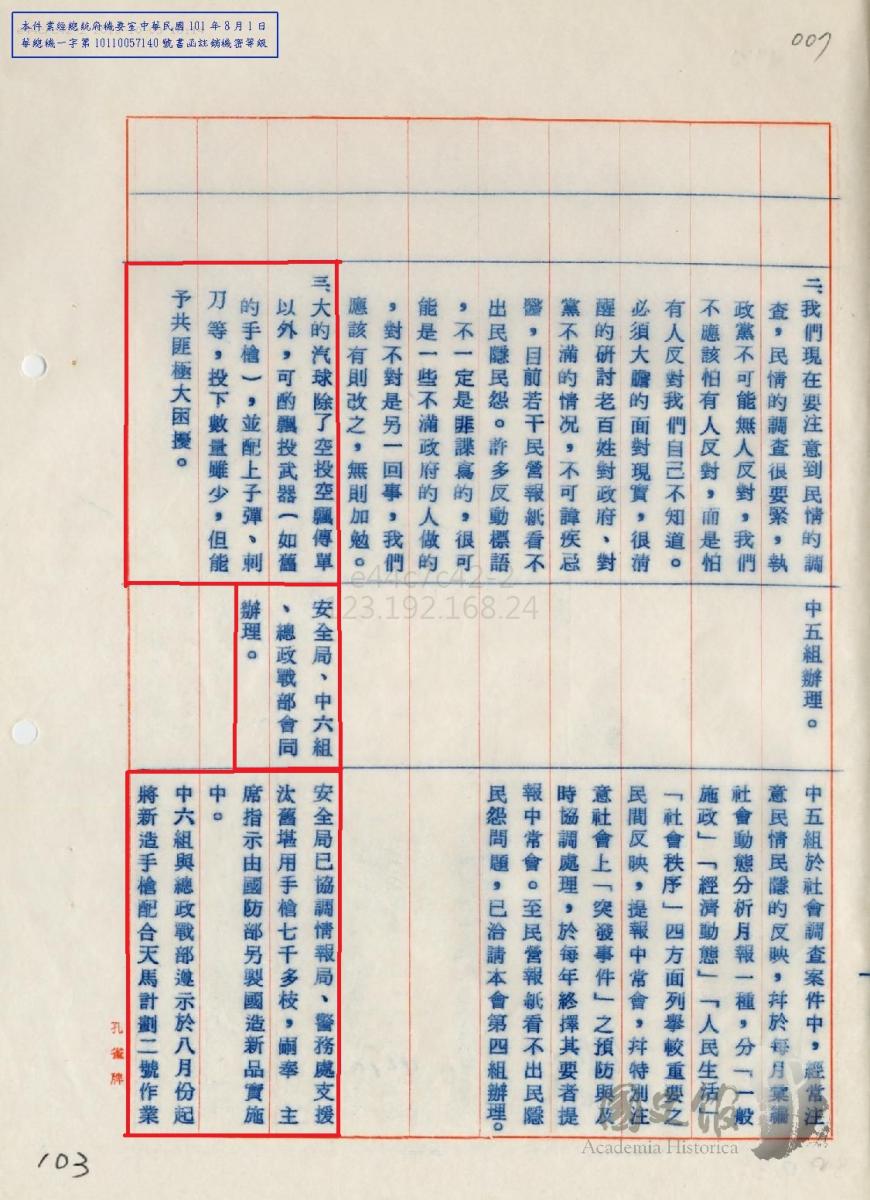 本件業經總統府機要室中華民國101年8月1日
華總機一字第10110057140號書函註銷機密等級
007
二、我們現在要注意到民情的調
查,民情的調查很要緊,執
政黨不可能無人反對,我們
不應該怕有人反對,而是怕
有人反對我們自己不知道。
必須大膽的面對現實,很清
醒的研討老百姓對政府、對
黨不滿的情況,不可諱疾忌
醫,目前若干民營報紙看不
出民隱民怨。許多反動標語
,不一定是匪諜寫的,很可
能是一些不滿政府的人做的
,對不對是另一回事,我們
應該有則改之,無則加勉。
中五組辦理。
中五組於社會調查案件中,經常注
意民情民隱的反映,并於每月彙編
社會動態分析月報一種,分「一般
施政」「經濟動態」「人民生活」
「社會秩序」四方面列舉較重要之
民間反映,提報中常會,并特別注
意社會上「突發事件」之預防與及
時協調處理,於每年終擇其要者提
報中常會。至民營報紙看不出民隱
民怨問題,已洽請本會第四組辦理。
三、大的汽球除了空投空飄傳單
以外,可酌飄投武器(如舊
的手槍),並配上子彈、刺
刀等,投下數量雖少,但能
予共匪極大困擾。
安全局、中六組
、總政戰部會同
辦理。
安全局已協調情報局、警務處支援
汰舊堪用手槍七千多枝,嗣奉 主
席指示由國防部另製國造新品實施
中。
中六組與總政戰部遵示於八月份起
將新造手槍配合天馬計劃二號作業
孔雀牌
e44c7c42-2
123.192.168.24
國史館
Academia Historica
103